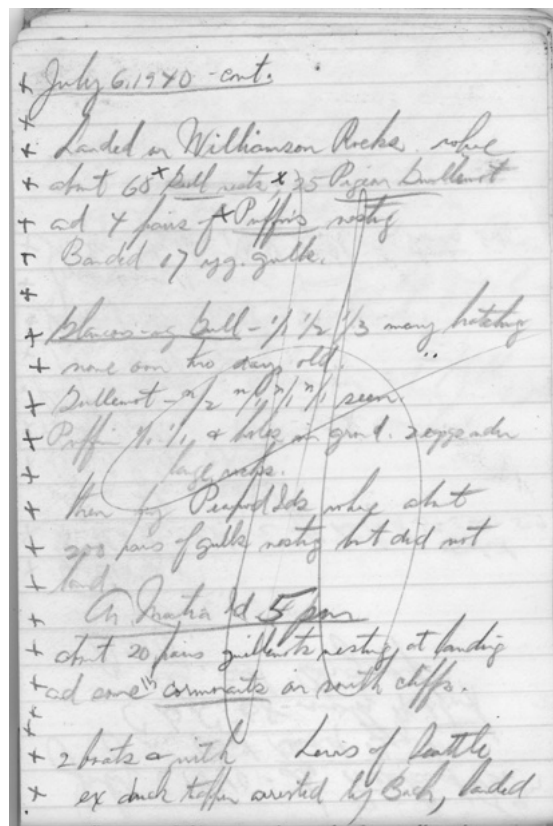 July 6, 1940 - cont.
Landed on Williamson Rocks. where
about 60 Gull nests, 35 Pigeon Guillemot
ad 4 pairs of Puffins nesting
Banded 17 yg. gulls.
Glaucous-wg Gull - 1/1 1/2 1/3 many hatching
none over two days old.
Guillemot - n/2 n/1, n/1, n/1 seen.
Puffin 1/1, 1/1, & holes in grnd. 2 eggs under
large rocks.
then by Peapod Ids where about
200 pairs of gulls nesting but did not
land.
Ar Matia Id 5 pm
about 20 pairs guillemots nesting at landing
ad some cormorants on south cliffs.
2 boats with Lewis of Seattle
ex duck arrested by Bach, landed